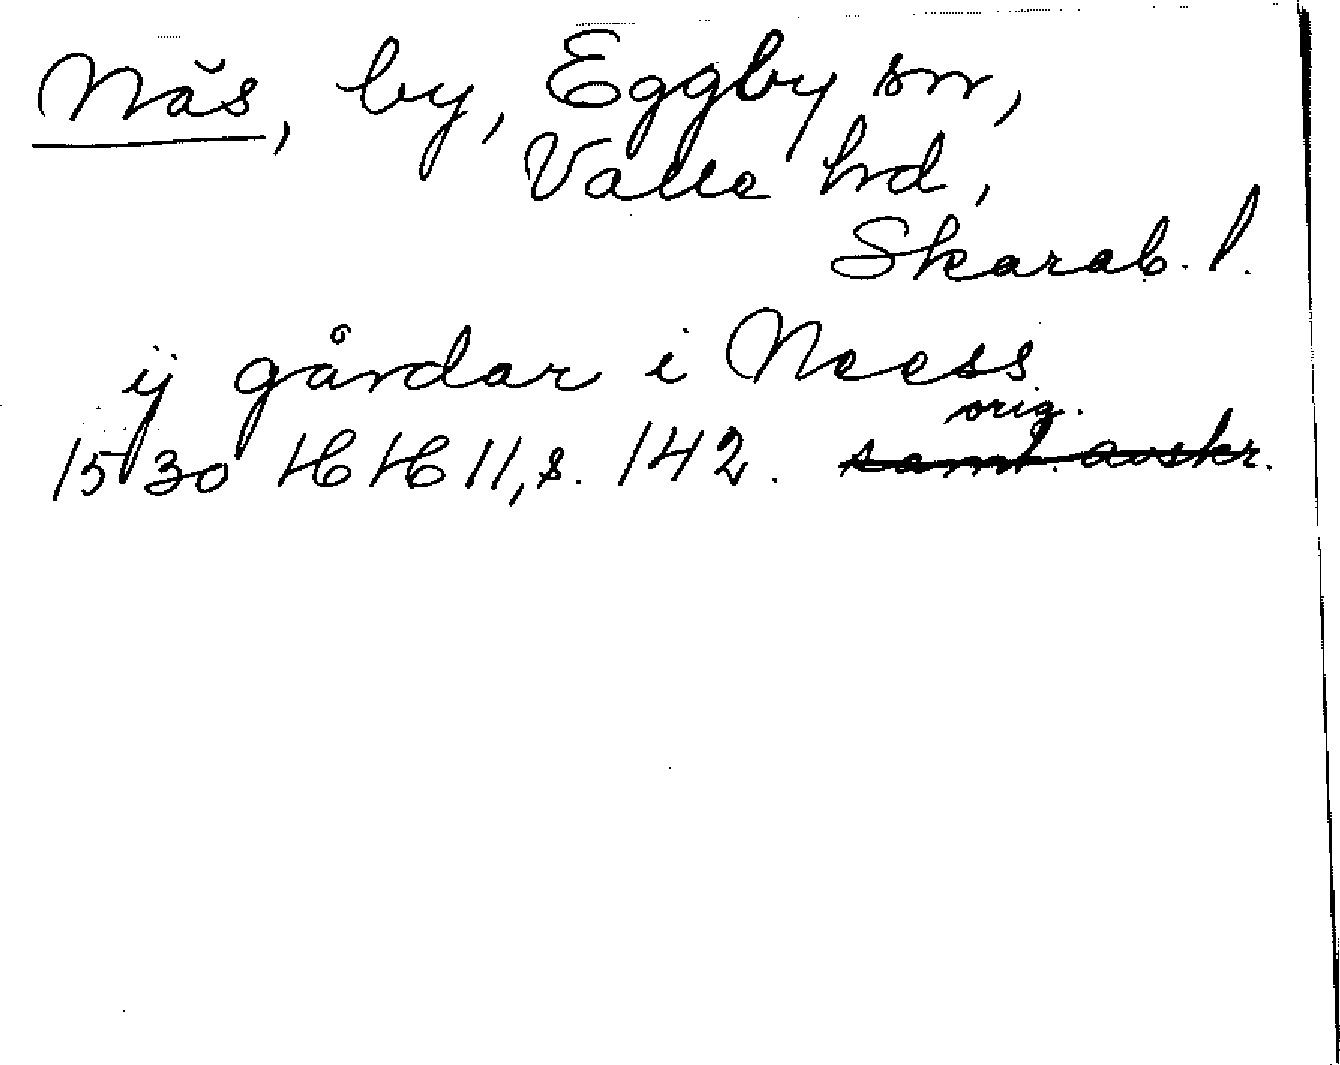 Näs, by, Eggby sn,
Valle hd,
Skarab. l.
ij gårdar i Neess
orig.
1530 HH 11, s. 142. samt. avskr.